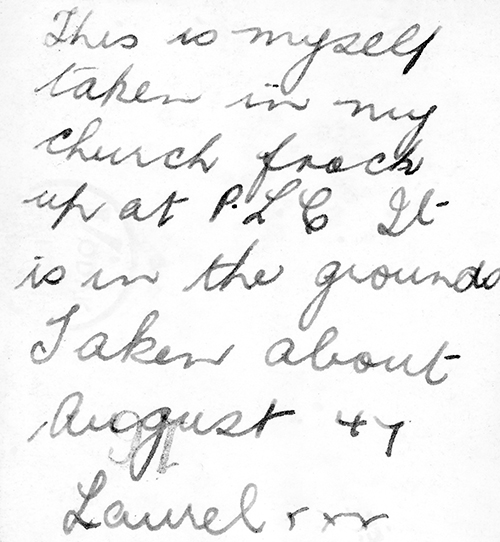 This is myself
taken in my
church frock
up at P.L.C It
is in the grounds
Taken about
August 47
Laurel xxx